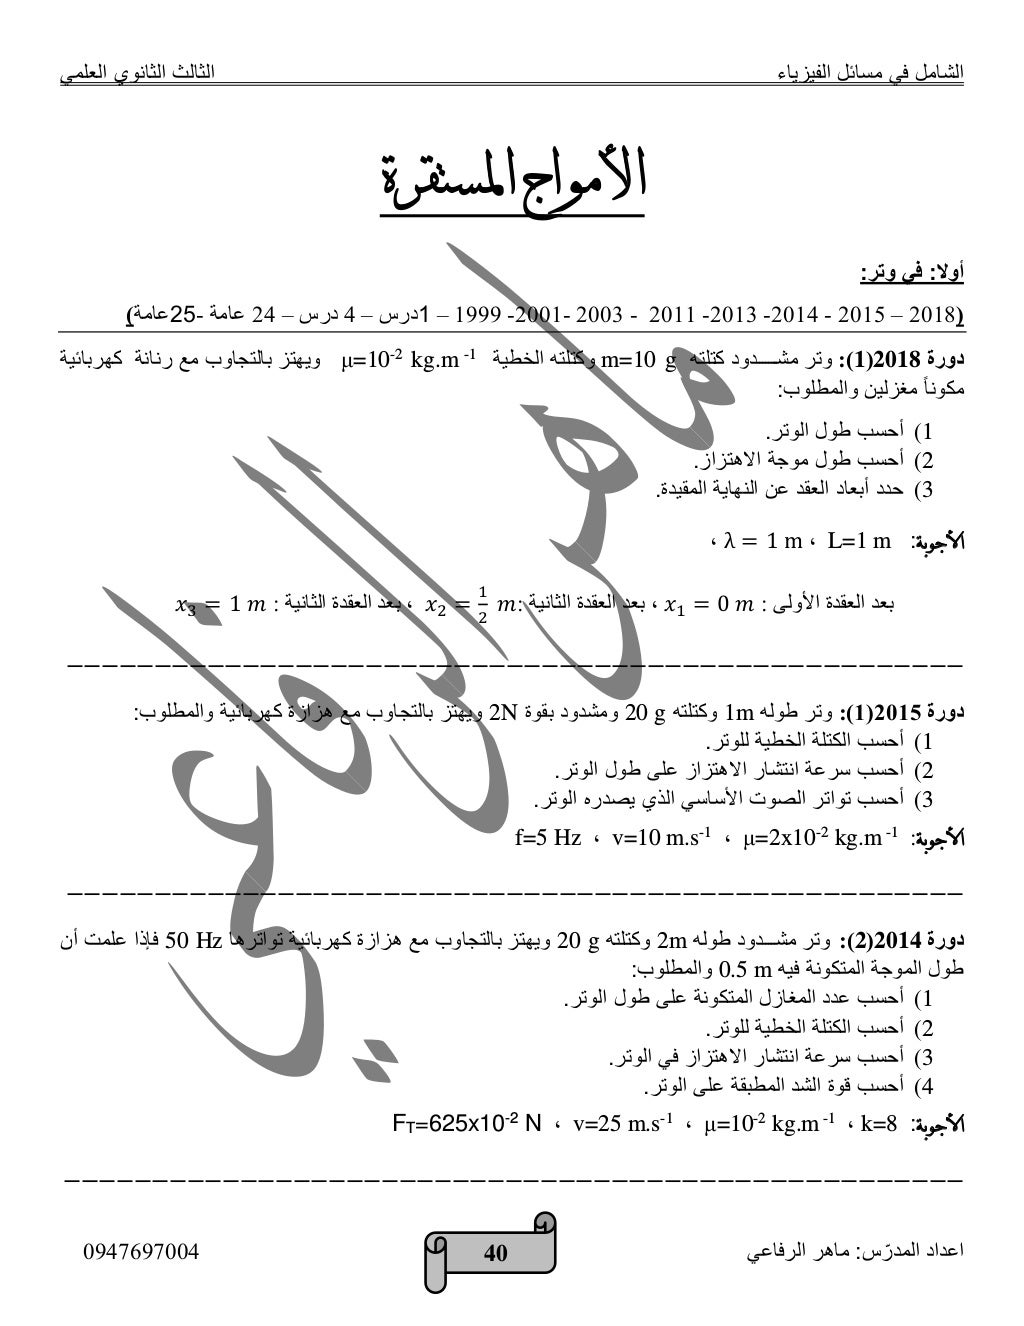 الشامل في مسائل الفيزياء الثالث الثانوي العلمي
الأمواج المستقرة
أولا: في وتر:
(2018 – 2015 - 2014- 2013- 2011 - 2003 -2001- 1999 – 1درس – 4 درس – 24 عامة -25عامة)
دورة 2018(1): وتر مشدود كتلته m=10 g وكتلته الخطية μ=10-2 kg.m -1 ويهتز بالتجاوب مع رنانة كهربائية
مكوناً مغزلين والمطلوب:
1) أحسب طول الوتر.
2) أحسب طول موجة الاهتزاز.
3) حدد أبعاد العقد عن النهاية المقيدة.
الأجوبة: L=1 m ، λ = 1 m ،
بعد العقدة الأولى : x1 = 0 m ، بعد العقدة الثانية :x2 = 1/2 m ، بعد العقدة الثانية : x3 = 1 m
دورة 2015(1): وتر طوله 1m وكتلته 20 g ومشدود بقوة 2N ويهتز بالتجاوب مع هزازة كهربائية والمطلوب:
1) أحسب الكتلة الخطية للوتر.
2) أحسب سرعة انتشار الاهتزاز على طول الوتر.
3) أحسب تواتر الصوت الأساسي الذي يصدره الوتر.
الأجوبة: μ=2x10-2 kg.m -1 ، v=10 m.s-1 ، f=5 Hz
دورة 2014(2): وتر مشدود طوله 2m وكتلته 20 g ويهتز بالتجاوب مع هزازة كهربائية تواترها 50 Hz فإذا علمت أن
طول الموجة المتكونة فيه 0.5 m والمطلوب:
1) أحسب عدد المغازل المتكونة على طول الوتر.
2) أحسب الكتلة الخطية للوتر.
3) أحسب سرعة انتشار الاهتزاز في الوتر.
4) أحسب قوة الشد المطبقة على الوتر.
الأجوبة: k=8 ، μ=10-2 kg.m -1 ، v=25 m.s-1 ، FT=625x10-2 N
اعداد المدرّس: ماهر الرفاعي 40 0947697004
ماهر الرفاعي